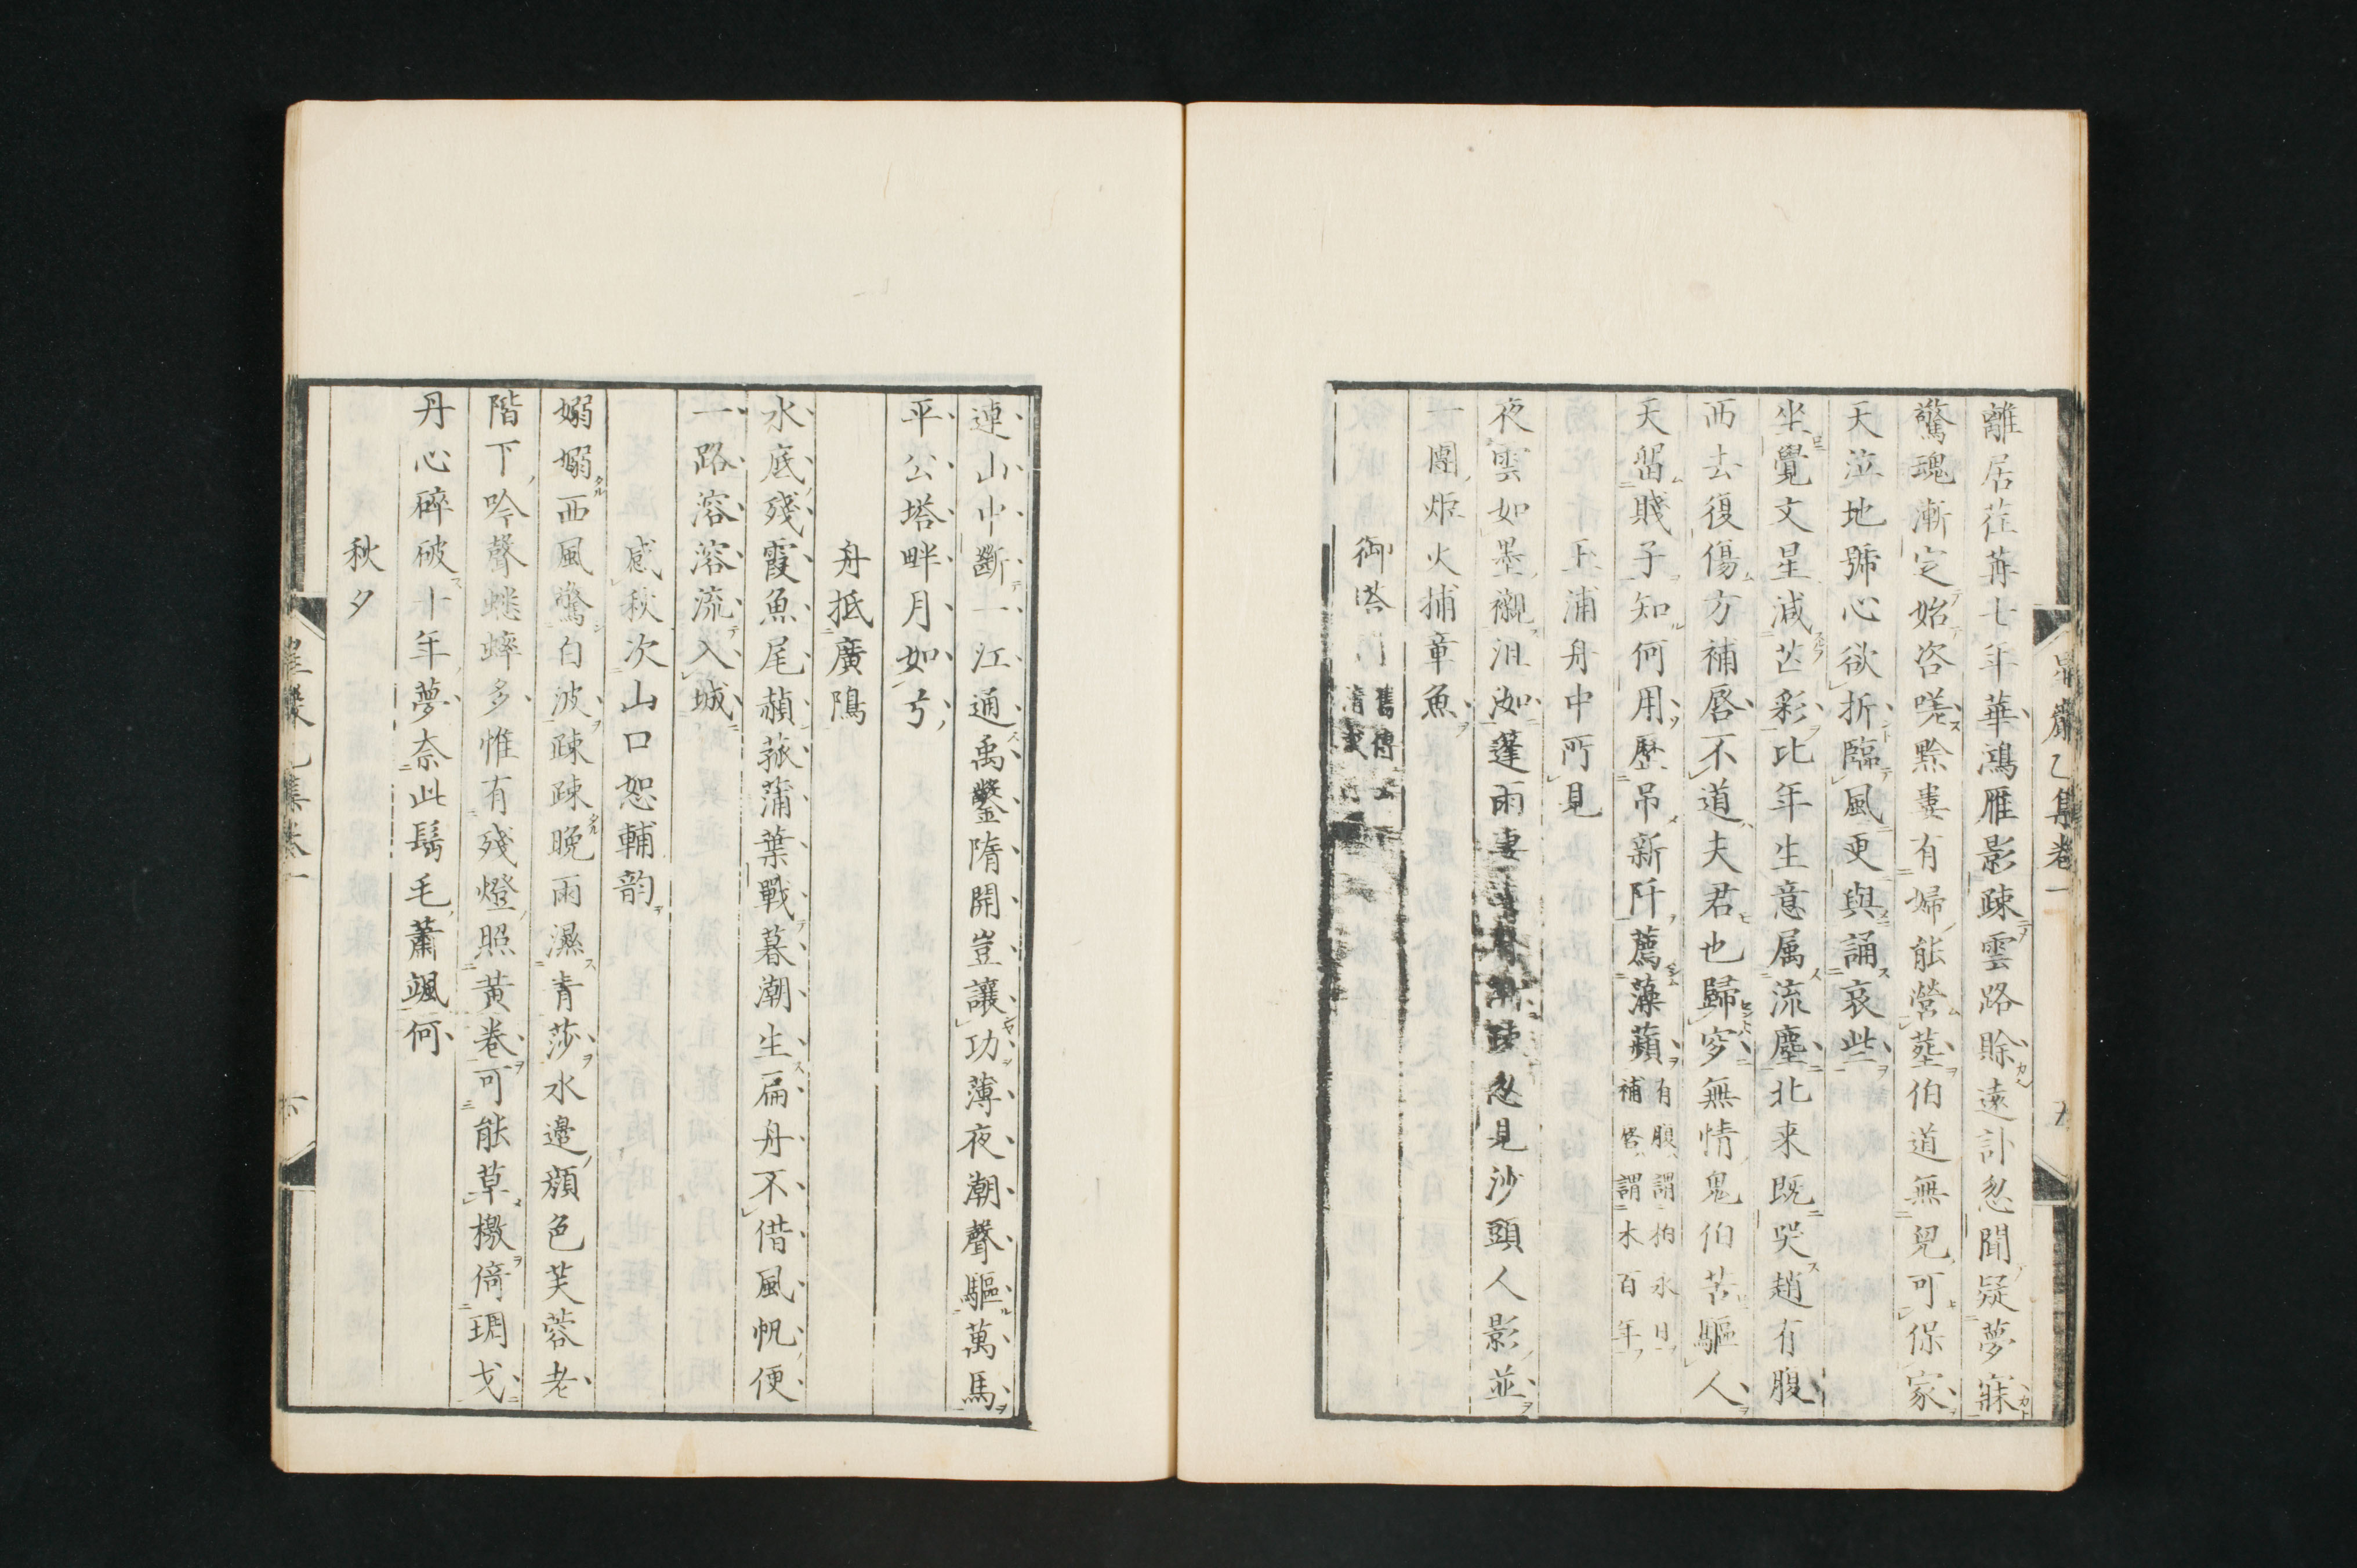 離居荏苒七年華鴻雁影疎雲路賖遠訃忽聞疑夢寐
驚魂漸定始咨嗟黔婁有婦能營塟伯道無兒可保家
天泣地號心欲折臨風更與誦哀些
坐覺文星減芒彩比年生意属流塵北来既哭趙有腹
西去復傷方補唇不道夫君也歸穸無情鬼伯苦驅人
天留賤子知何用歴吊新阡薦藻蘋
有腹謂柏永日
補唇謂木百年
玉浦舟中所見
夜雲如墨襯沮洳蓬雨忽見沙頭人影並
一團炬火捕章魚
御塔
舊傳
連山中斷一江通禹鑿隋開豈讓功薄夜潮聲驅萬馬
平公塔畔月如弓
舟抵廣隝
水底殘霞魚尾赬菰蒲葉戰暮潮生扁舟不借風帆便
一路溶溶流入城
感秋次山口恕輔韵
嫋嫋西風驚白波疎疎晩雨濕青莎水邉顔色芙蓉老
階下吟聲蟋蟀多惟有殘燈照黃卷可能草檄倚琱戈
丹心碎破十年夢奈此鬂毛蕭颯何
秋夕
乙集卷一
乙集卷一